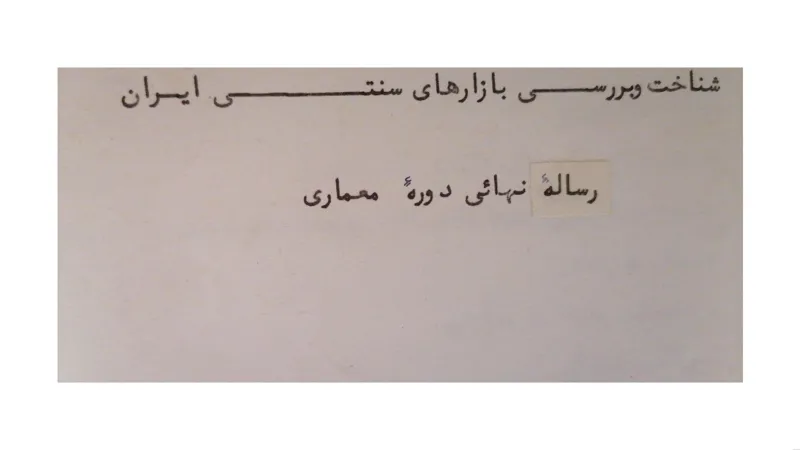 شناخت وبررسی بازارهای سنتی ایران
رسالهٔ نهائی دورهٔ معماری